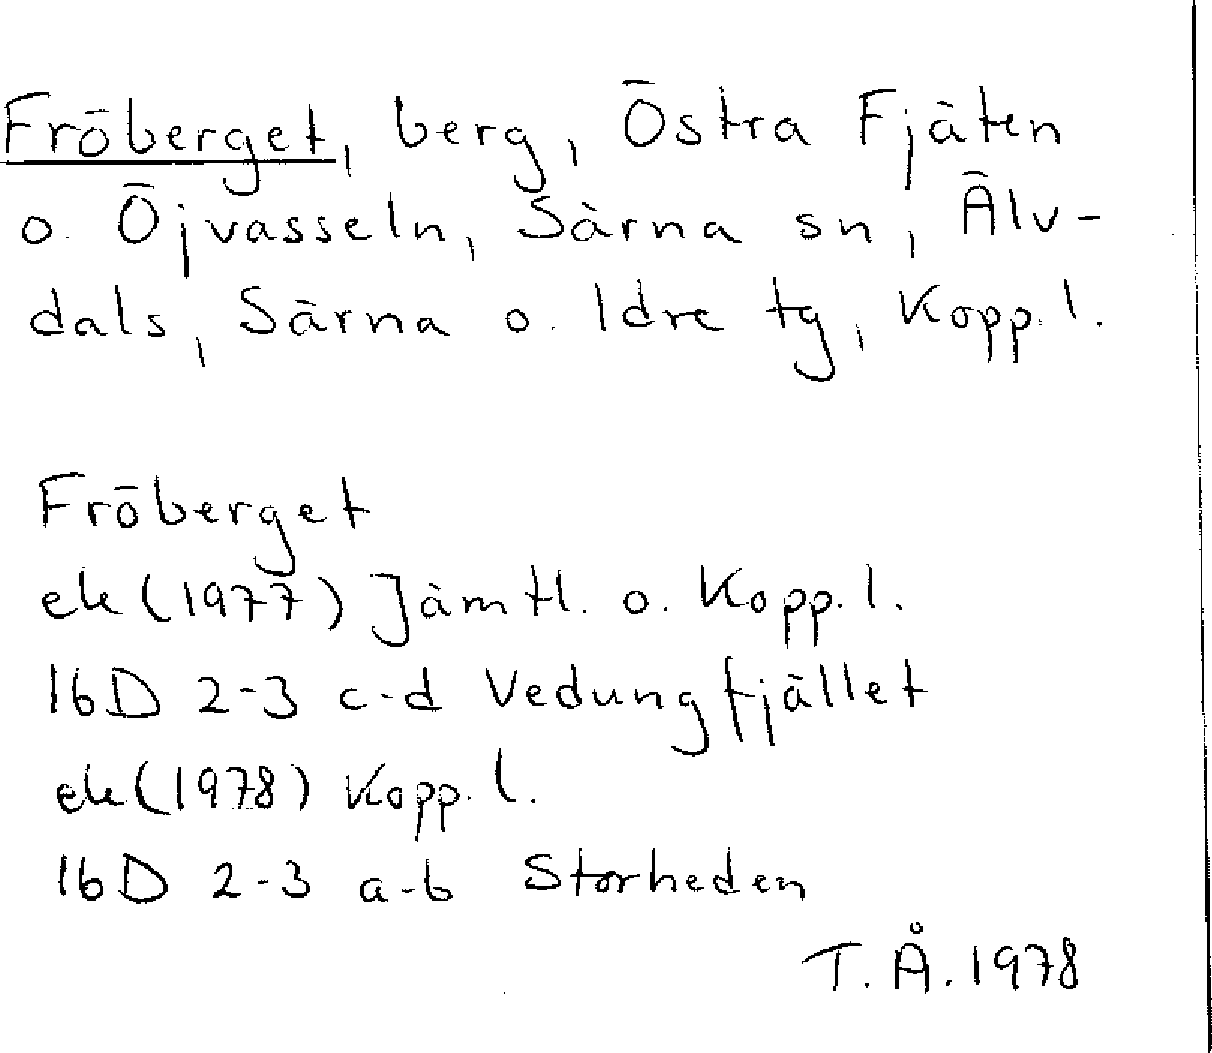 Fröberget, berg, Östra Fjäten
o. Öjvasseln, Särna sn, Älv-
dals, Särna o. Idre tg, Kopp. l.
Fröberget
ek (1977) Jämtl. o. Kopp. l.
16D 2-3 c-d Vedungfjället
ek (1978) Kopp. l.
16D 2-3 a-b Storheden
T. Å. 1978